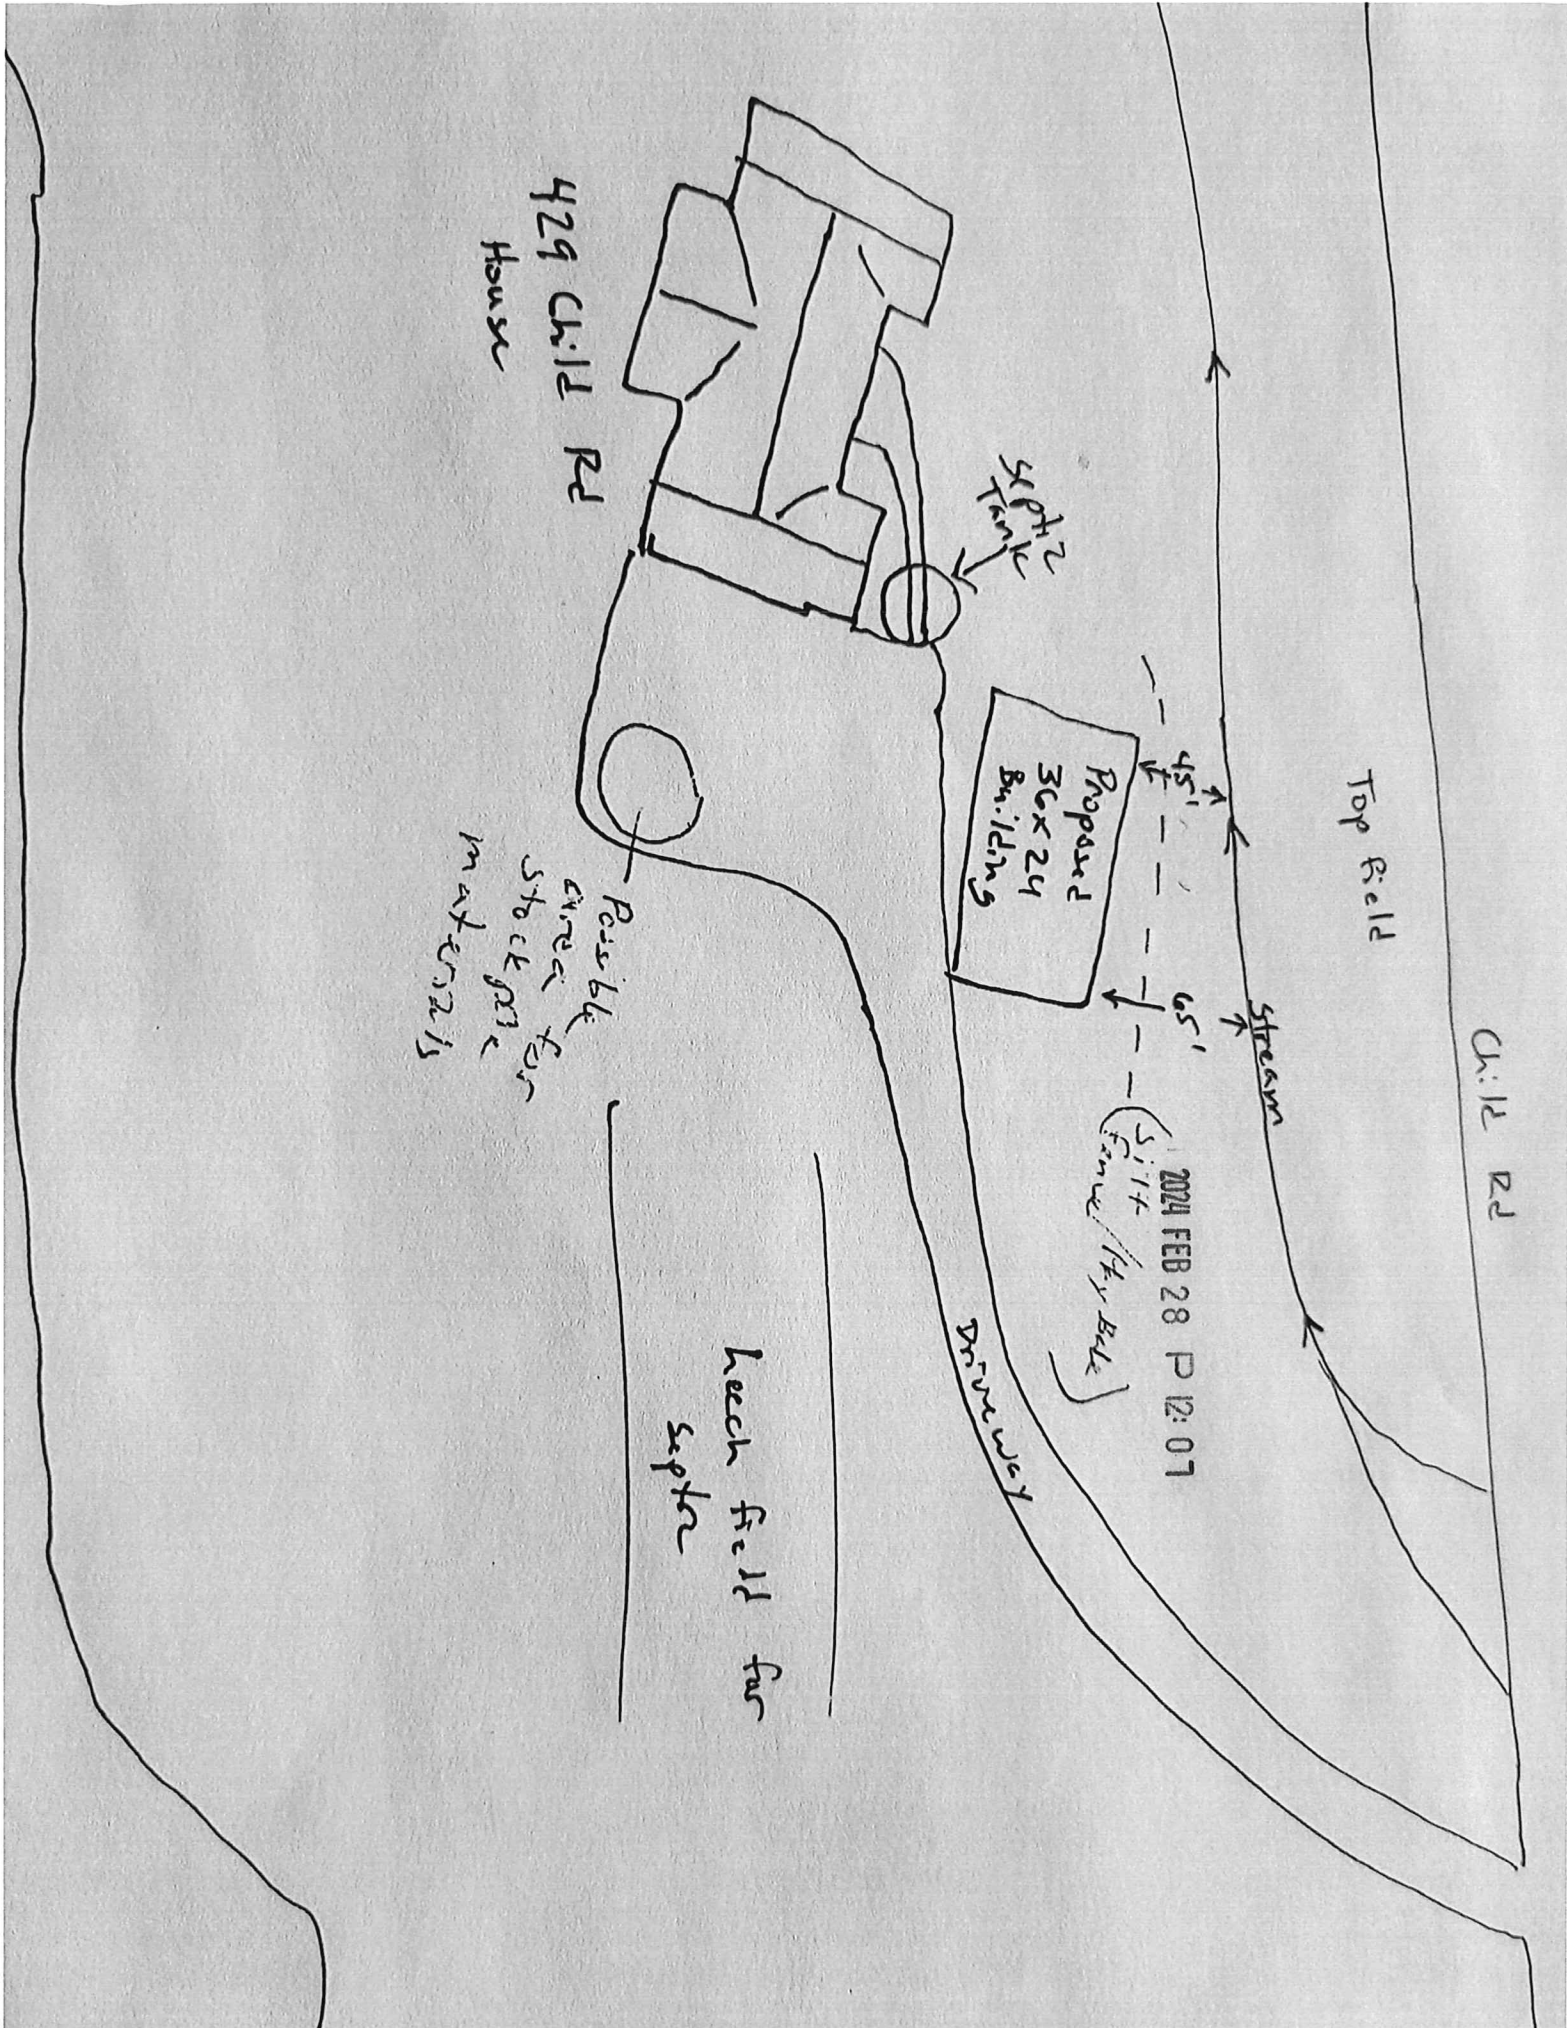 Child Rd
Top field
Stream
45'
65'
2024 FEB 28 P 12:07
(Silt
Fence/Hay Bale)
Septic
Tank
Proposed
36x24
Building
Driveway
429 Child Rd
House
Possible
area for
stockpile
materials
Leech field for
septic